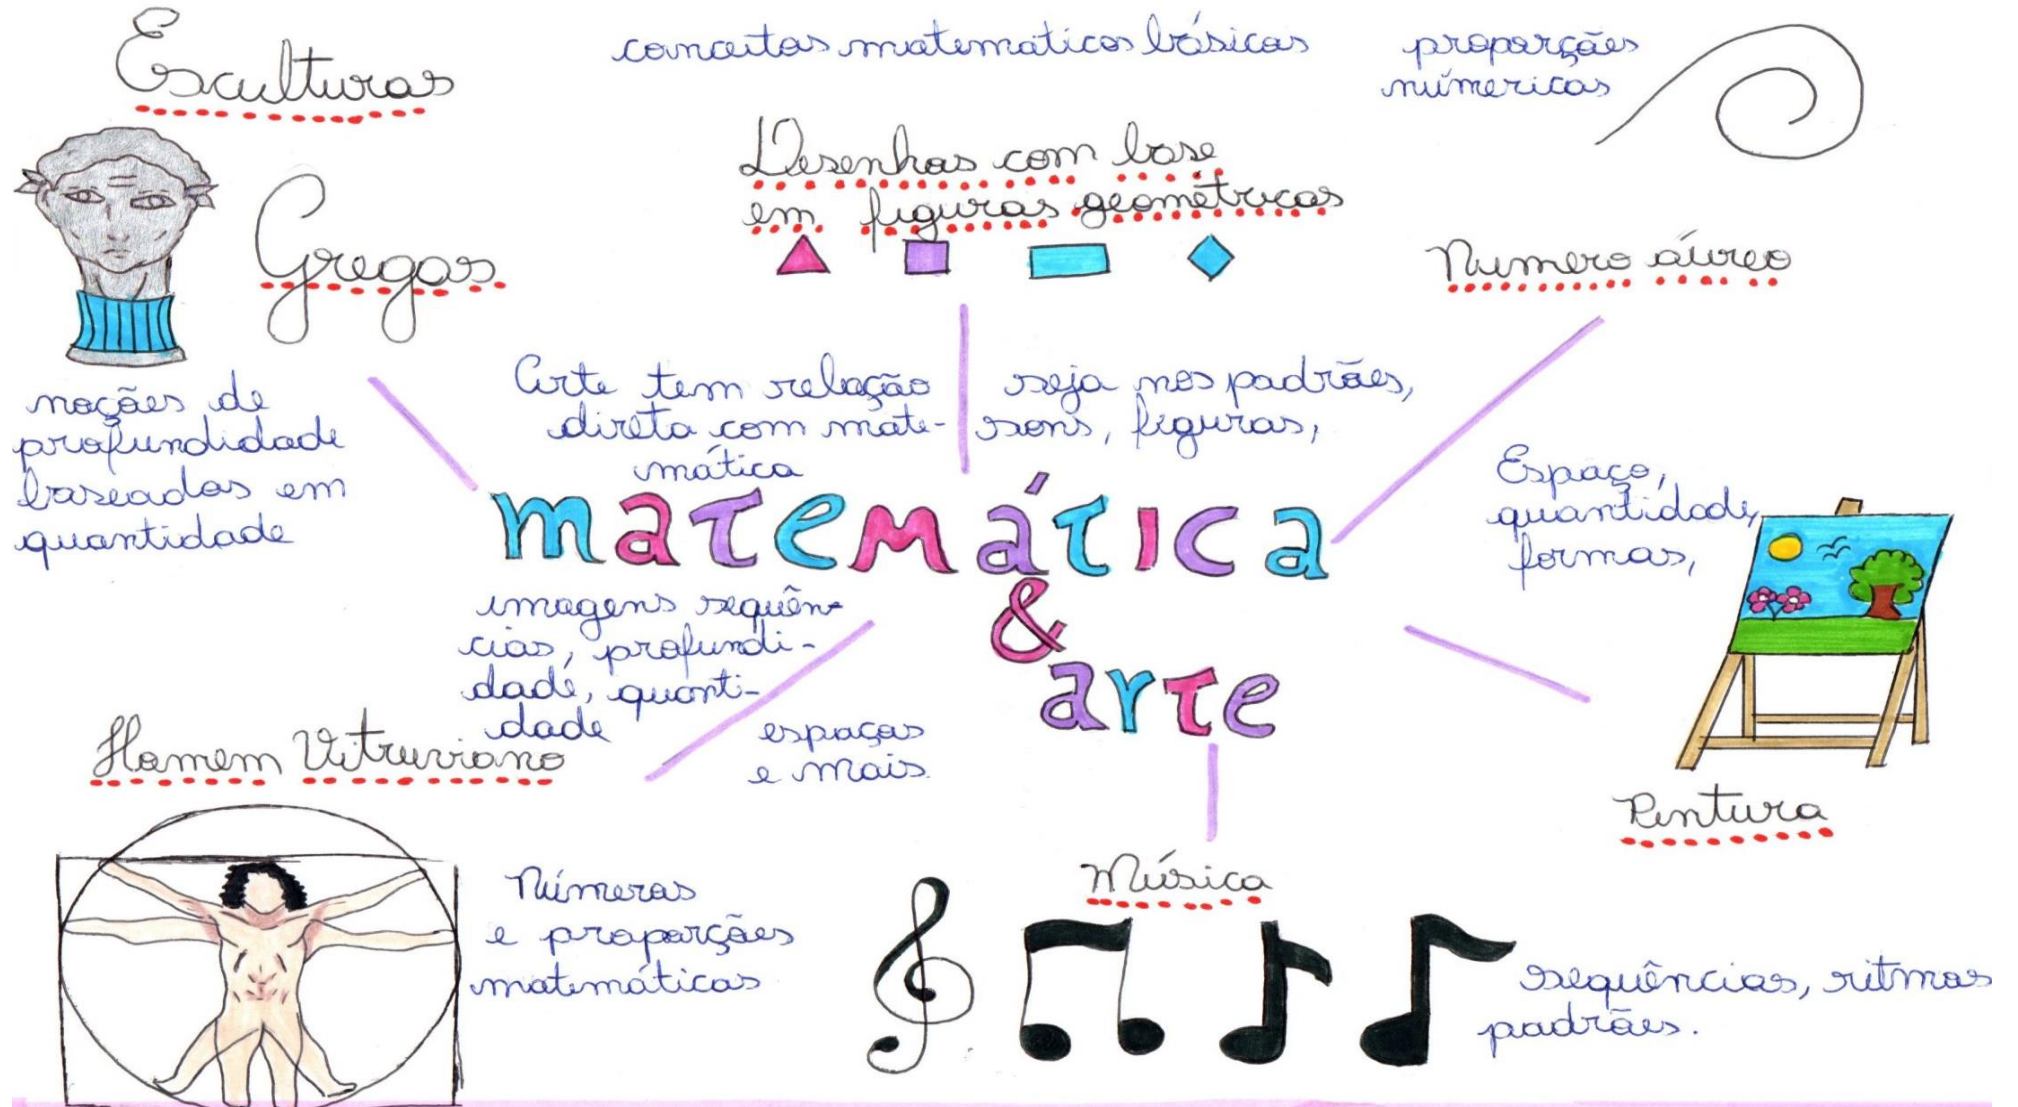 Esculturas
Gregas
noções de
profundidade
baseadas em
quantidade
conceitos matematicos básicos
Desenhos com base
em figuras geométricas
proporções
númericas
Numero áureo
Arte tem relação
direta com mate-
mática
seja nos padrões,
sons, figuras,
matemática
&
arte
imagens sequên-
cias, profundi-
dade, quanti-
dade
espaços
e mais
Espaço,
quantidade,
formas,
Pintura
Homem Vitruviano
Números
e proporções
matemáticas
Música
sequências, ritmos
padrões.